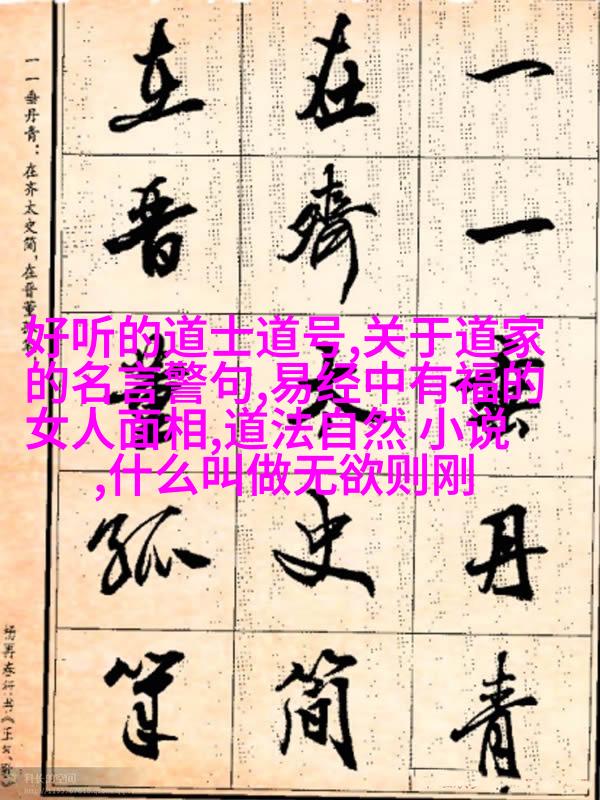 一一垂丹青
在齊太史简
在晋董狐筆
一一垂丹青：在齐太史简，在晋董
杨再春行书《正气
好听的道士道号,关于道家
的名言警句,易经中有福的
女人面相,道法自然 小说
,什么叫做无欲则刚
科长的空间